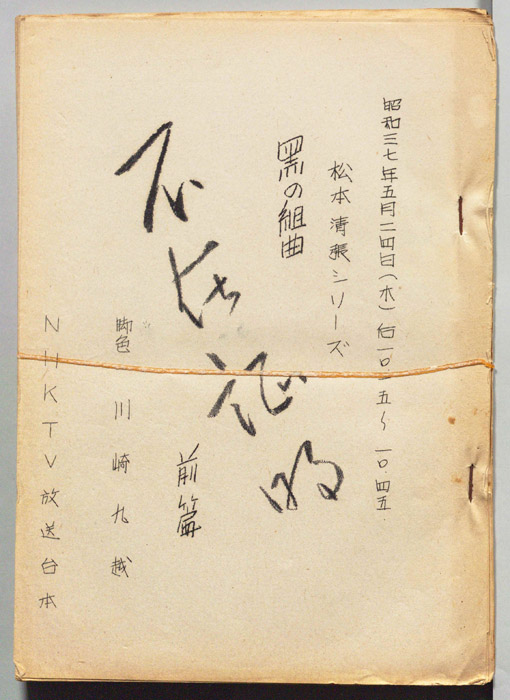 昭和三七年五月二四日(木)后一〇・一五〜一〇・四五
松本清張シリーズ
黒の組曲
不在証明
前篇
脚色 川崎九越
NHKTV放送台本